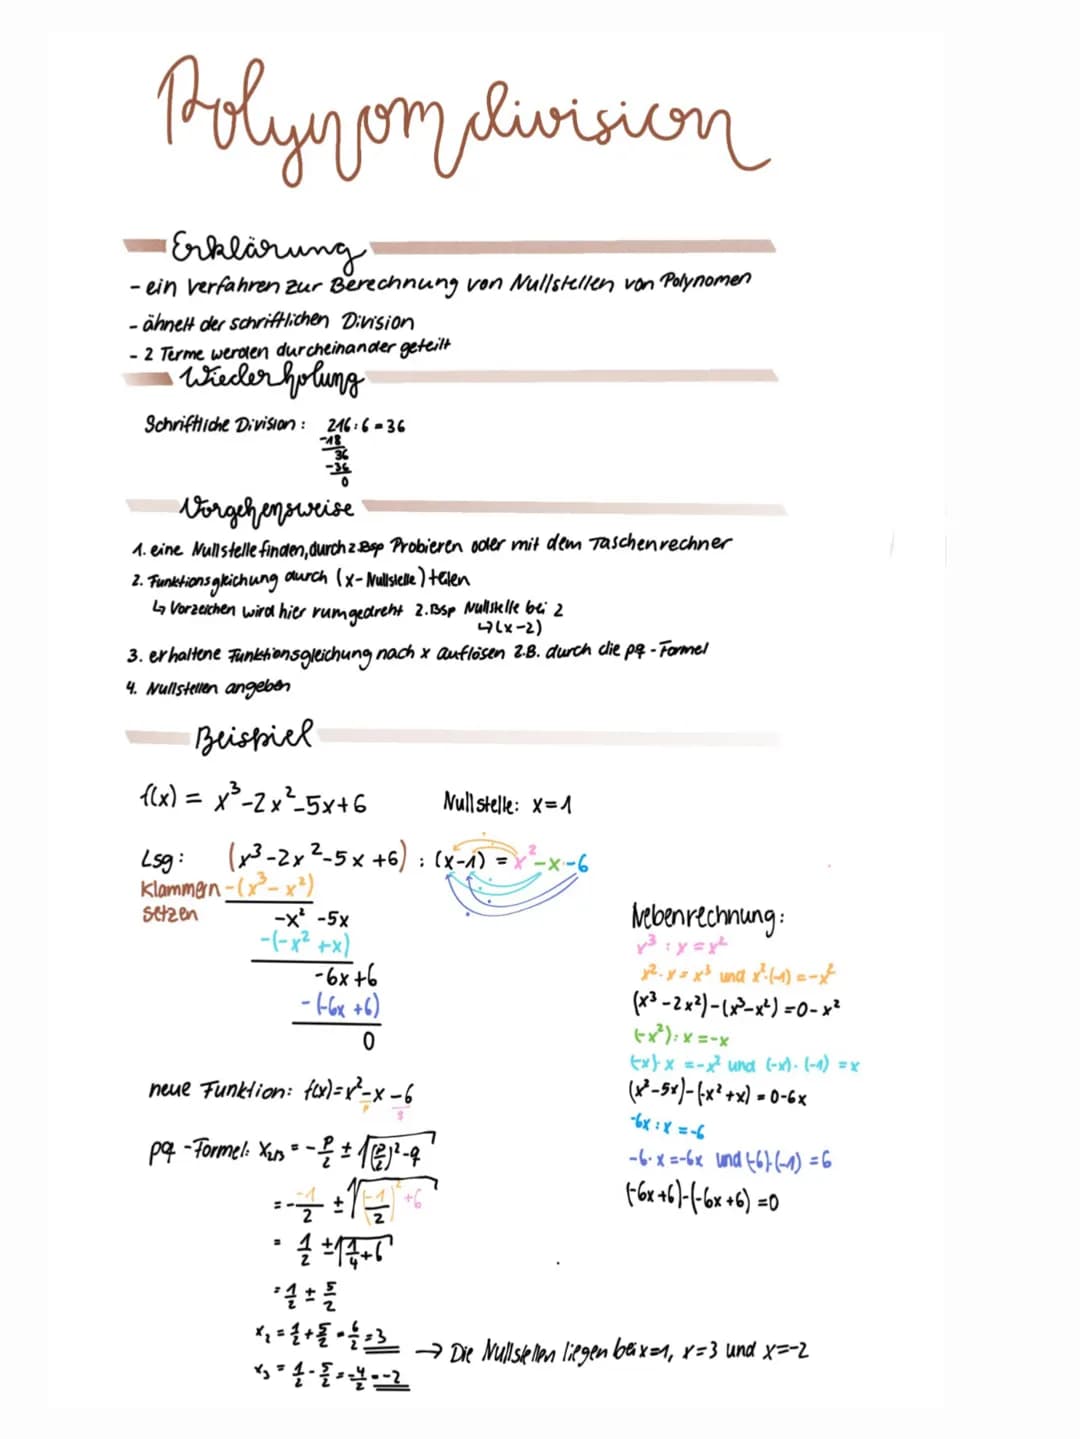 Polynomdivision
Erklärung
- ein Verfahren zur Berechnung von Nullstellen von Polynomen
- ähnelt der schriftlichen Division
- 2 Terme werden durcheinander geteilt
Wiederholung
Schriftliche Division: 216:6=36
-18
36
-36
0
Vorgehensweise
1. eine Nullstelle finden, durch z.Bsp Probieren oder mit dem Taschenrechner
2. Funktionsgleichung durch (x-Nullstelle) teilen
↳ Vorzeichen wird hier rumgedreht z.Bsp Nullstelle bei 2
↳(x-2)
3. erhaltene Funktionsgleichung nach x auflösen z.B. durch die pq-Formel
4. Nullstellen angeben
Beispiel
f(x) = x³-2x²-5x+6 Nullstelle: x=1
Lsg: (x³-2x²-5x+6) : (x-1) = x²-x-6
Klammern -(x³-x²)
setzen -x² -5x
-(-x²+x)
-6x+6
-(-6x+6)
0
Nebenrechnung:
x³:x=x²
x²·x=x³ und x²·(-1)=-x²
(x³-2x²)-(x³-x²)=0-x²
(-x²):x=-x
(-x)·x=-x² und (-x)·(-1)=x
(x²-5x)-(-x²+x)=0-6x
-6x:x=-6
-6·x=-6x und (-6)·(-1)=6
(-6x+6)-(-6x+6)=0
neue Funktion: f(x)=x²-x-6
p q
pq-Formel: x₂/₃ = -p/2 ± √((p/2)²-q)
= -(-1)/2 ± √((-1/2)²+6)
= 1/2 ± √(1/4+6)
= 1/2 ± 5/2
x₂ = 1/2 + 5/2 = 6/2 = 3
x₃ = 1/2 - 5/2 = -4/2 = -2
→ Die Nullstellen liegen bei x=1, x=3 und x=-2